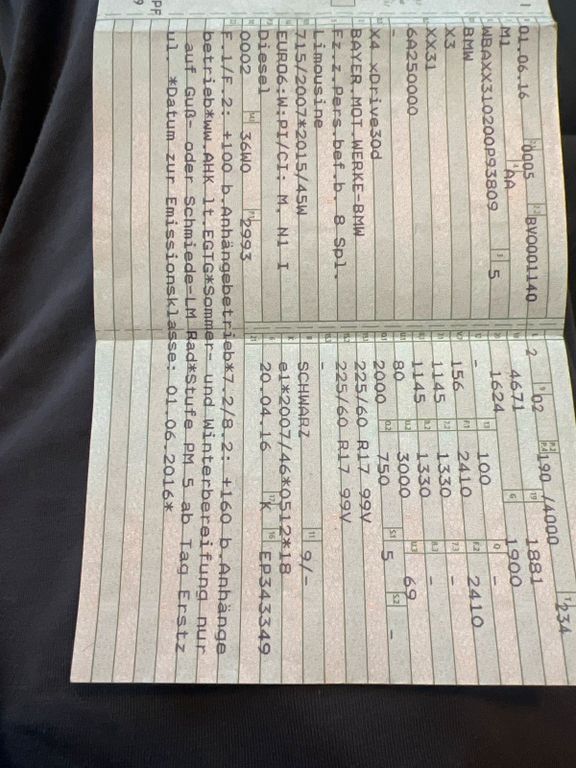 01.06.16 0005 BVO001140 2 02 190 /4000 234
M1 AA 4671 1881
WBAXX310200P93809 5 1624 1900
BMW - 100 -
X3 156 2410 2410
XX31 1145 1330 -
6A250000 1145 1330 -
- 80 3000 69
X4 xDrive30d 2000 750 5 -
BAYER.MOT.WERKE-BMW 225/60 R17 99V
Fz.z.Pers.bef.b. 8 Spl. 225/60 R17 99V
Limousine -
715/2007*2015/45W SCHWARZ 9/-
EURO6;W;PI/CI; M, N1 I e1*2007/46*0512*18
Diesel 20.04.16 K EP343349
0002 36W0 2993
F.1/F.2: +100 b.Anhängebetrieb*7.2/8.2: +160 b.Anhänge
betrieb*ww.AHK lt.EGTG*Sommer- und Winterbereifung nur
auf Guß- oder Schmiede-LM Rad*Stufe PM 5 ab Tag Erstz
ul. *Datum zur Emissionsklasse: 01.06.2016*
PF
9